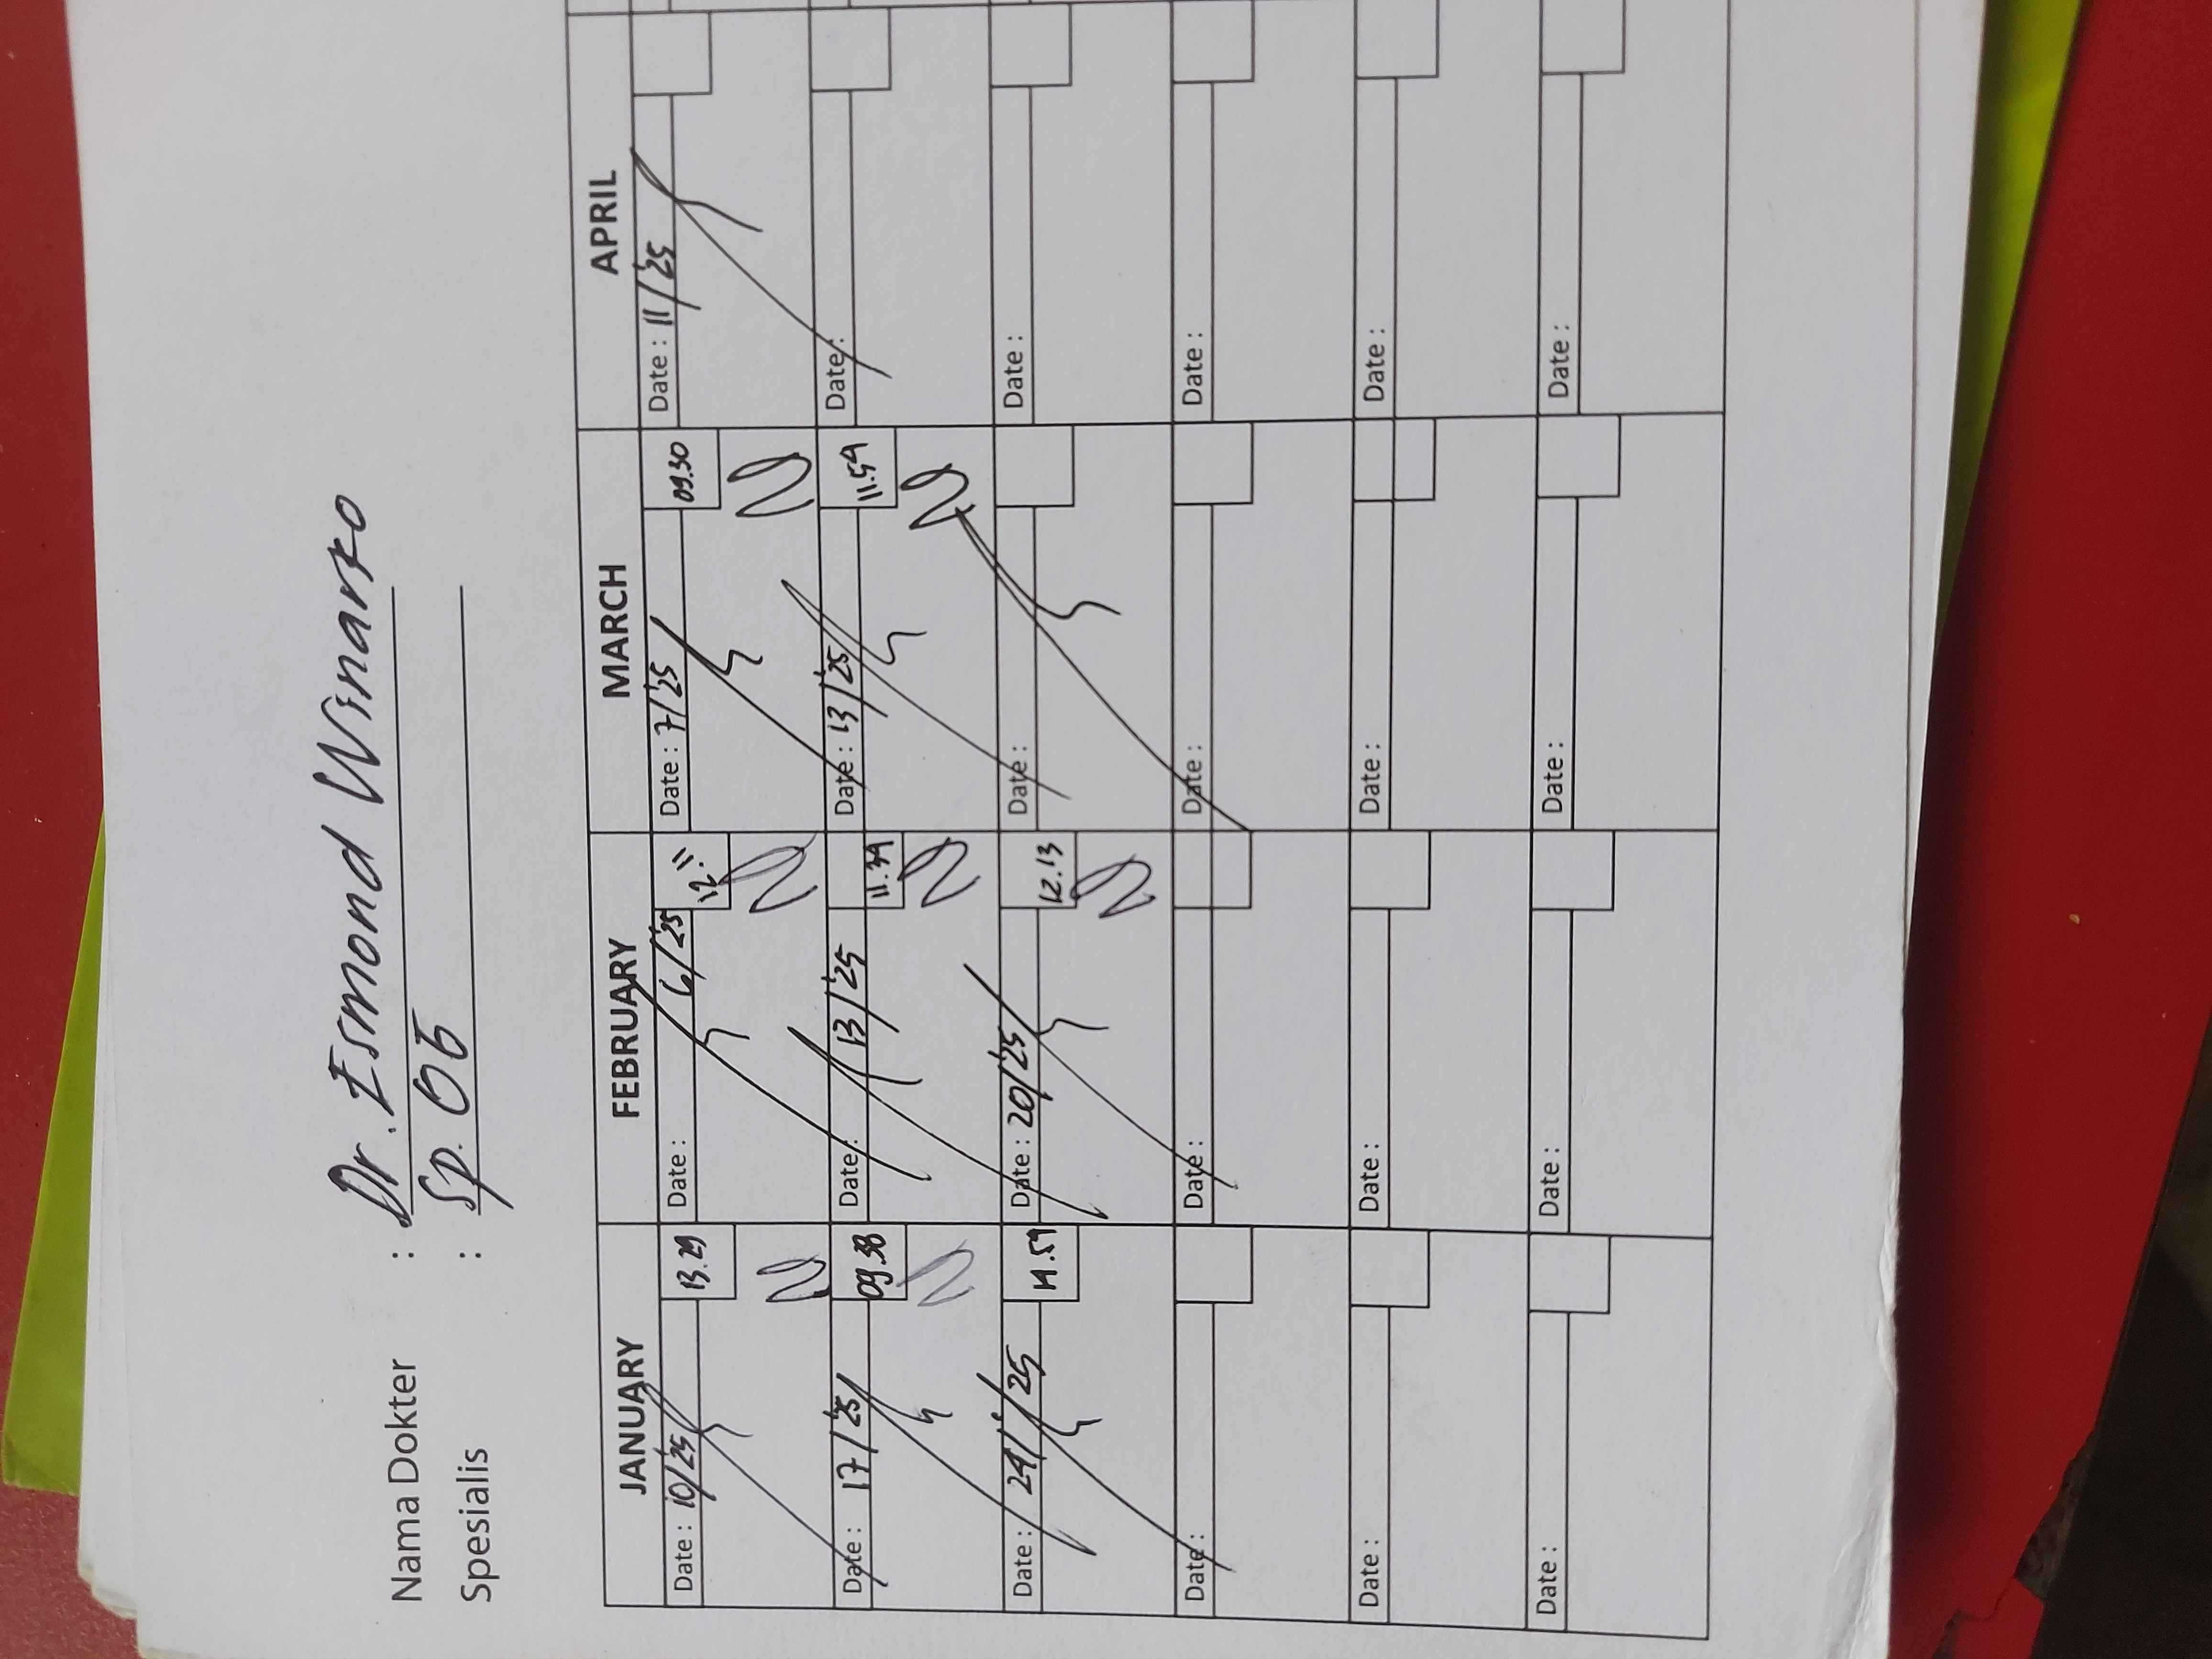 Nama Dokter : Dr. Esmond Winarko
Spesialis : Sp. OG
JANUARY FEBRUARY MARCH APRIL
Date : 10/'25 13.29 Date : 6/'25 12.11 Date : 7/'25 09.30 Date : 11/'25
Date : 17/'25 09.38 Date : 13/'25 11.39 Date : 13/'25 11.59 Date :
Date : 24/'25 Date : 20/'25 12.13 Date : Date :
Date : Date : Date : Date :
Date : Date : Date : Date :
Date : Date : Date : Date :